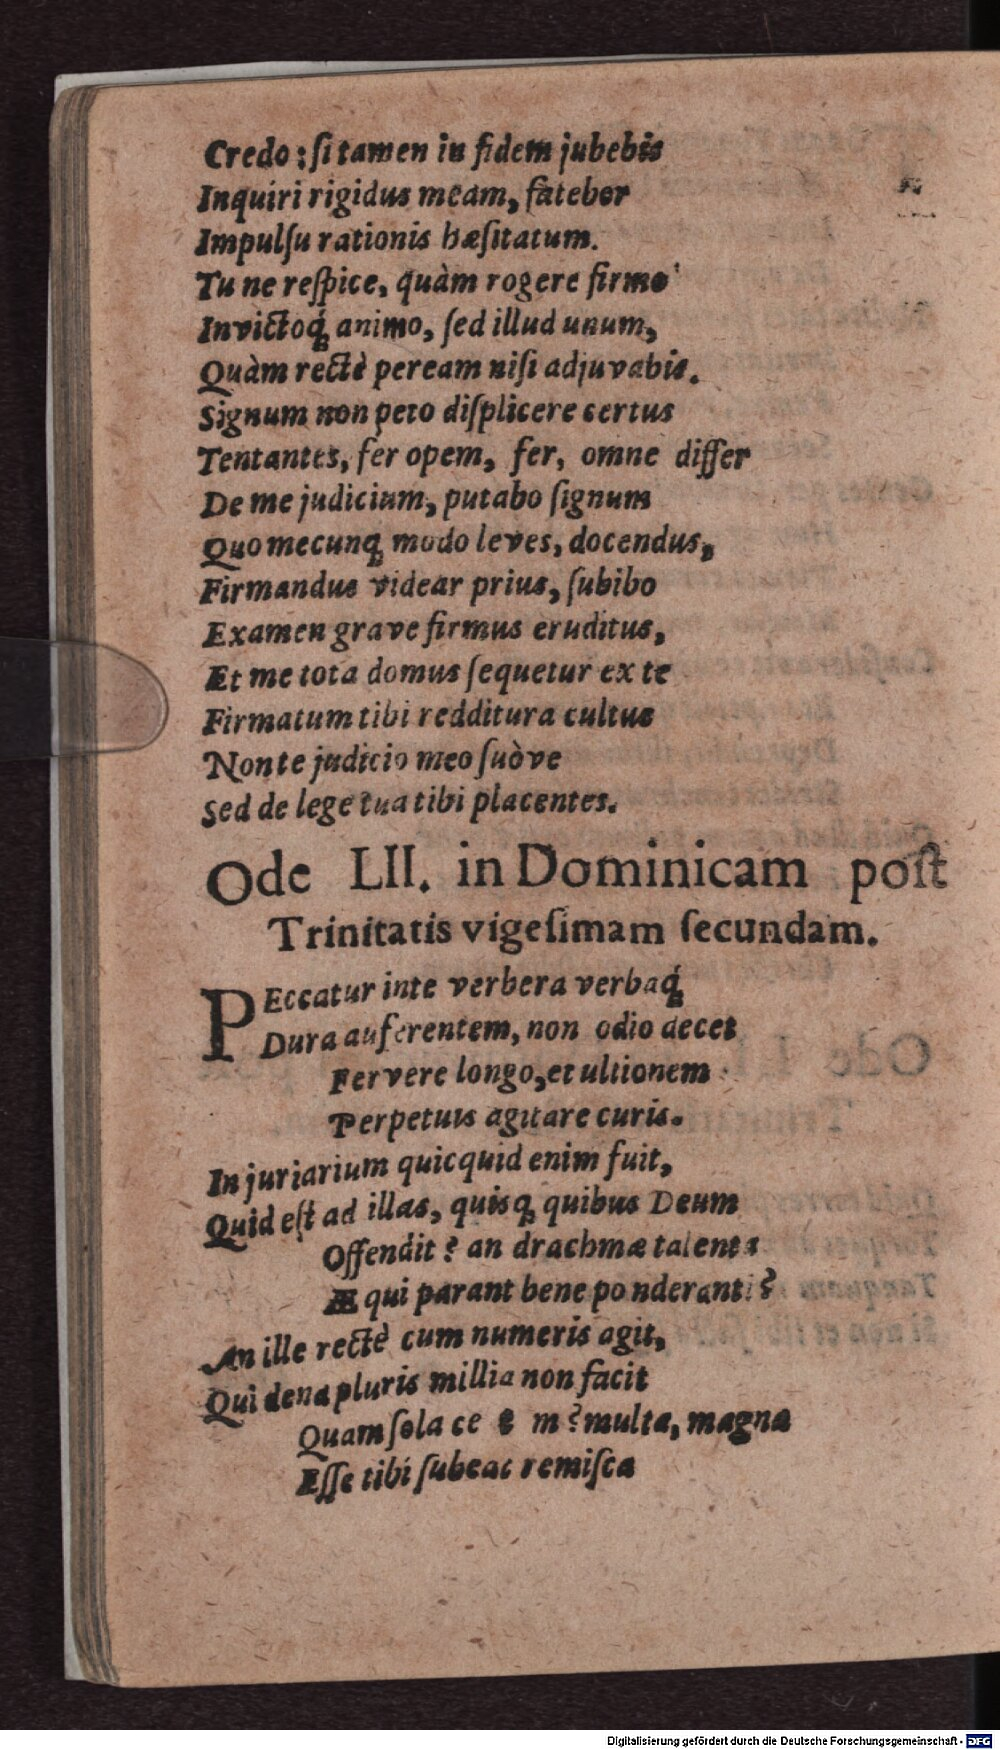 Credo : ſi tamen in fidem jubebis
Inquiri rigidus meam, fatebor
Impulſu rationis hæſitatum.
Tu ne reſpice, quàm rogere firmo
Invictoq́; animo, ſed illud unum,
Quàm rectè peream niſi adjuvabis.
Signum non peto diſplicere certus
Tentantes, fer opem, fer, omne differ
De me judicium, putabo ſignum
Quomecunq; modo leves, docendus,
Firmandus videar prius, ſubibo
Examen grave firmus eruditus,
Et me tota domus ſequetur ex te
Firmatum tibi redditura cultus
Non te judicio meo ſuòve
Sed de lege tua tibi placentes.
Ode LII. in Dominicam poſt
Trinitatis vigeſimam ſecundam.
PEccatur in te verbera verbaq́;
Dura auferentem, non odio decet
Fervere longo, et ultionem
Perpetuis agitare curis.
Injuriarium quicquid enim fuit,
Quid eſt ad illas, quisq; quibus Deum
Offendit? an drachmæ talenta
Æqui parant bene ponderanti?
An ille rectè cum numeris agit,
Qui dena pluris millia non facit
Quam ſola ce e m? multa, magna
Eſſe tibi ſubeac remiſca
Digitalisierung gefördert durch die Deutsche Forschungsgemeinschaft - DFG